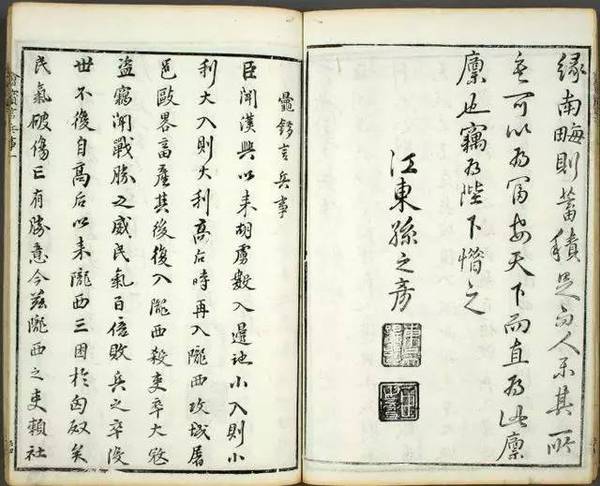 緣南畮則蓄積足而人樂其所
矣可以為富安天下而直為此廩
廩也竊為陛下惜之
江東孫之
鼂錯言兵事
臣聞漢興以來胡虜數入邊地小入則小
利大入則大利高后時再入隴西攻城屠
邑歐畧畜產其後復入隴西殺吏卒大寇
盜竊聞戰勝之威民氣百倍敗兵之卒沒
世不復自高后以來隴西三困於匈奴矣
民氣破傷亡有勝意今茲隴西之吏賴社